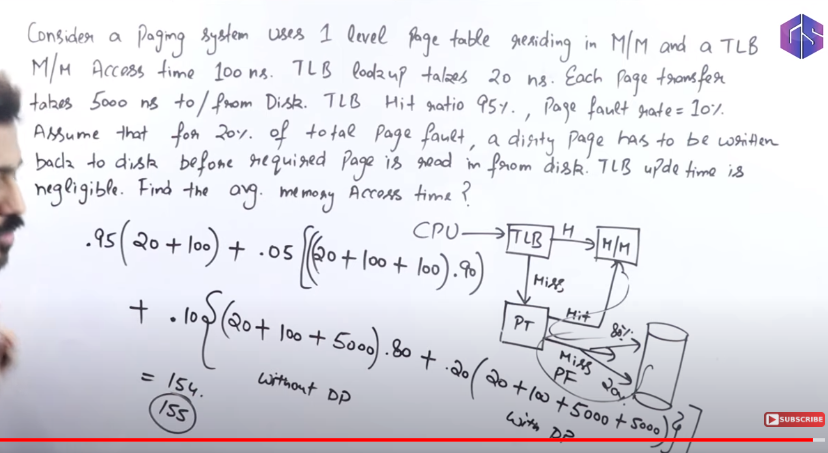 Consider a Paging system uses 1 level Page table residing in M/M and a TLB
M/M Access time 100 ns. TLB lookup takes 20 ns. Each Page transfer
takes 5000 ns to/from Disk. TLB Hit ratio 95%., Page fault rate = 10%.
Assume that for 20% of total Page fault, a dirty Page has to be written
back to disk before required Page is read in from disk. TLB upde time is
negligible. Find the avg. memory Access time ?
.95(20+100) + .05[((20+100+100).90)
+ .10{(20+100+5000).80 + .20(20+100+5000+5000)}]
without DP
with DP
= 154.
155
CPU
TLB
H
M/M
Miss
PT
Hit
80%
Miss
PF
20%
SUBSCRIBE